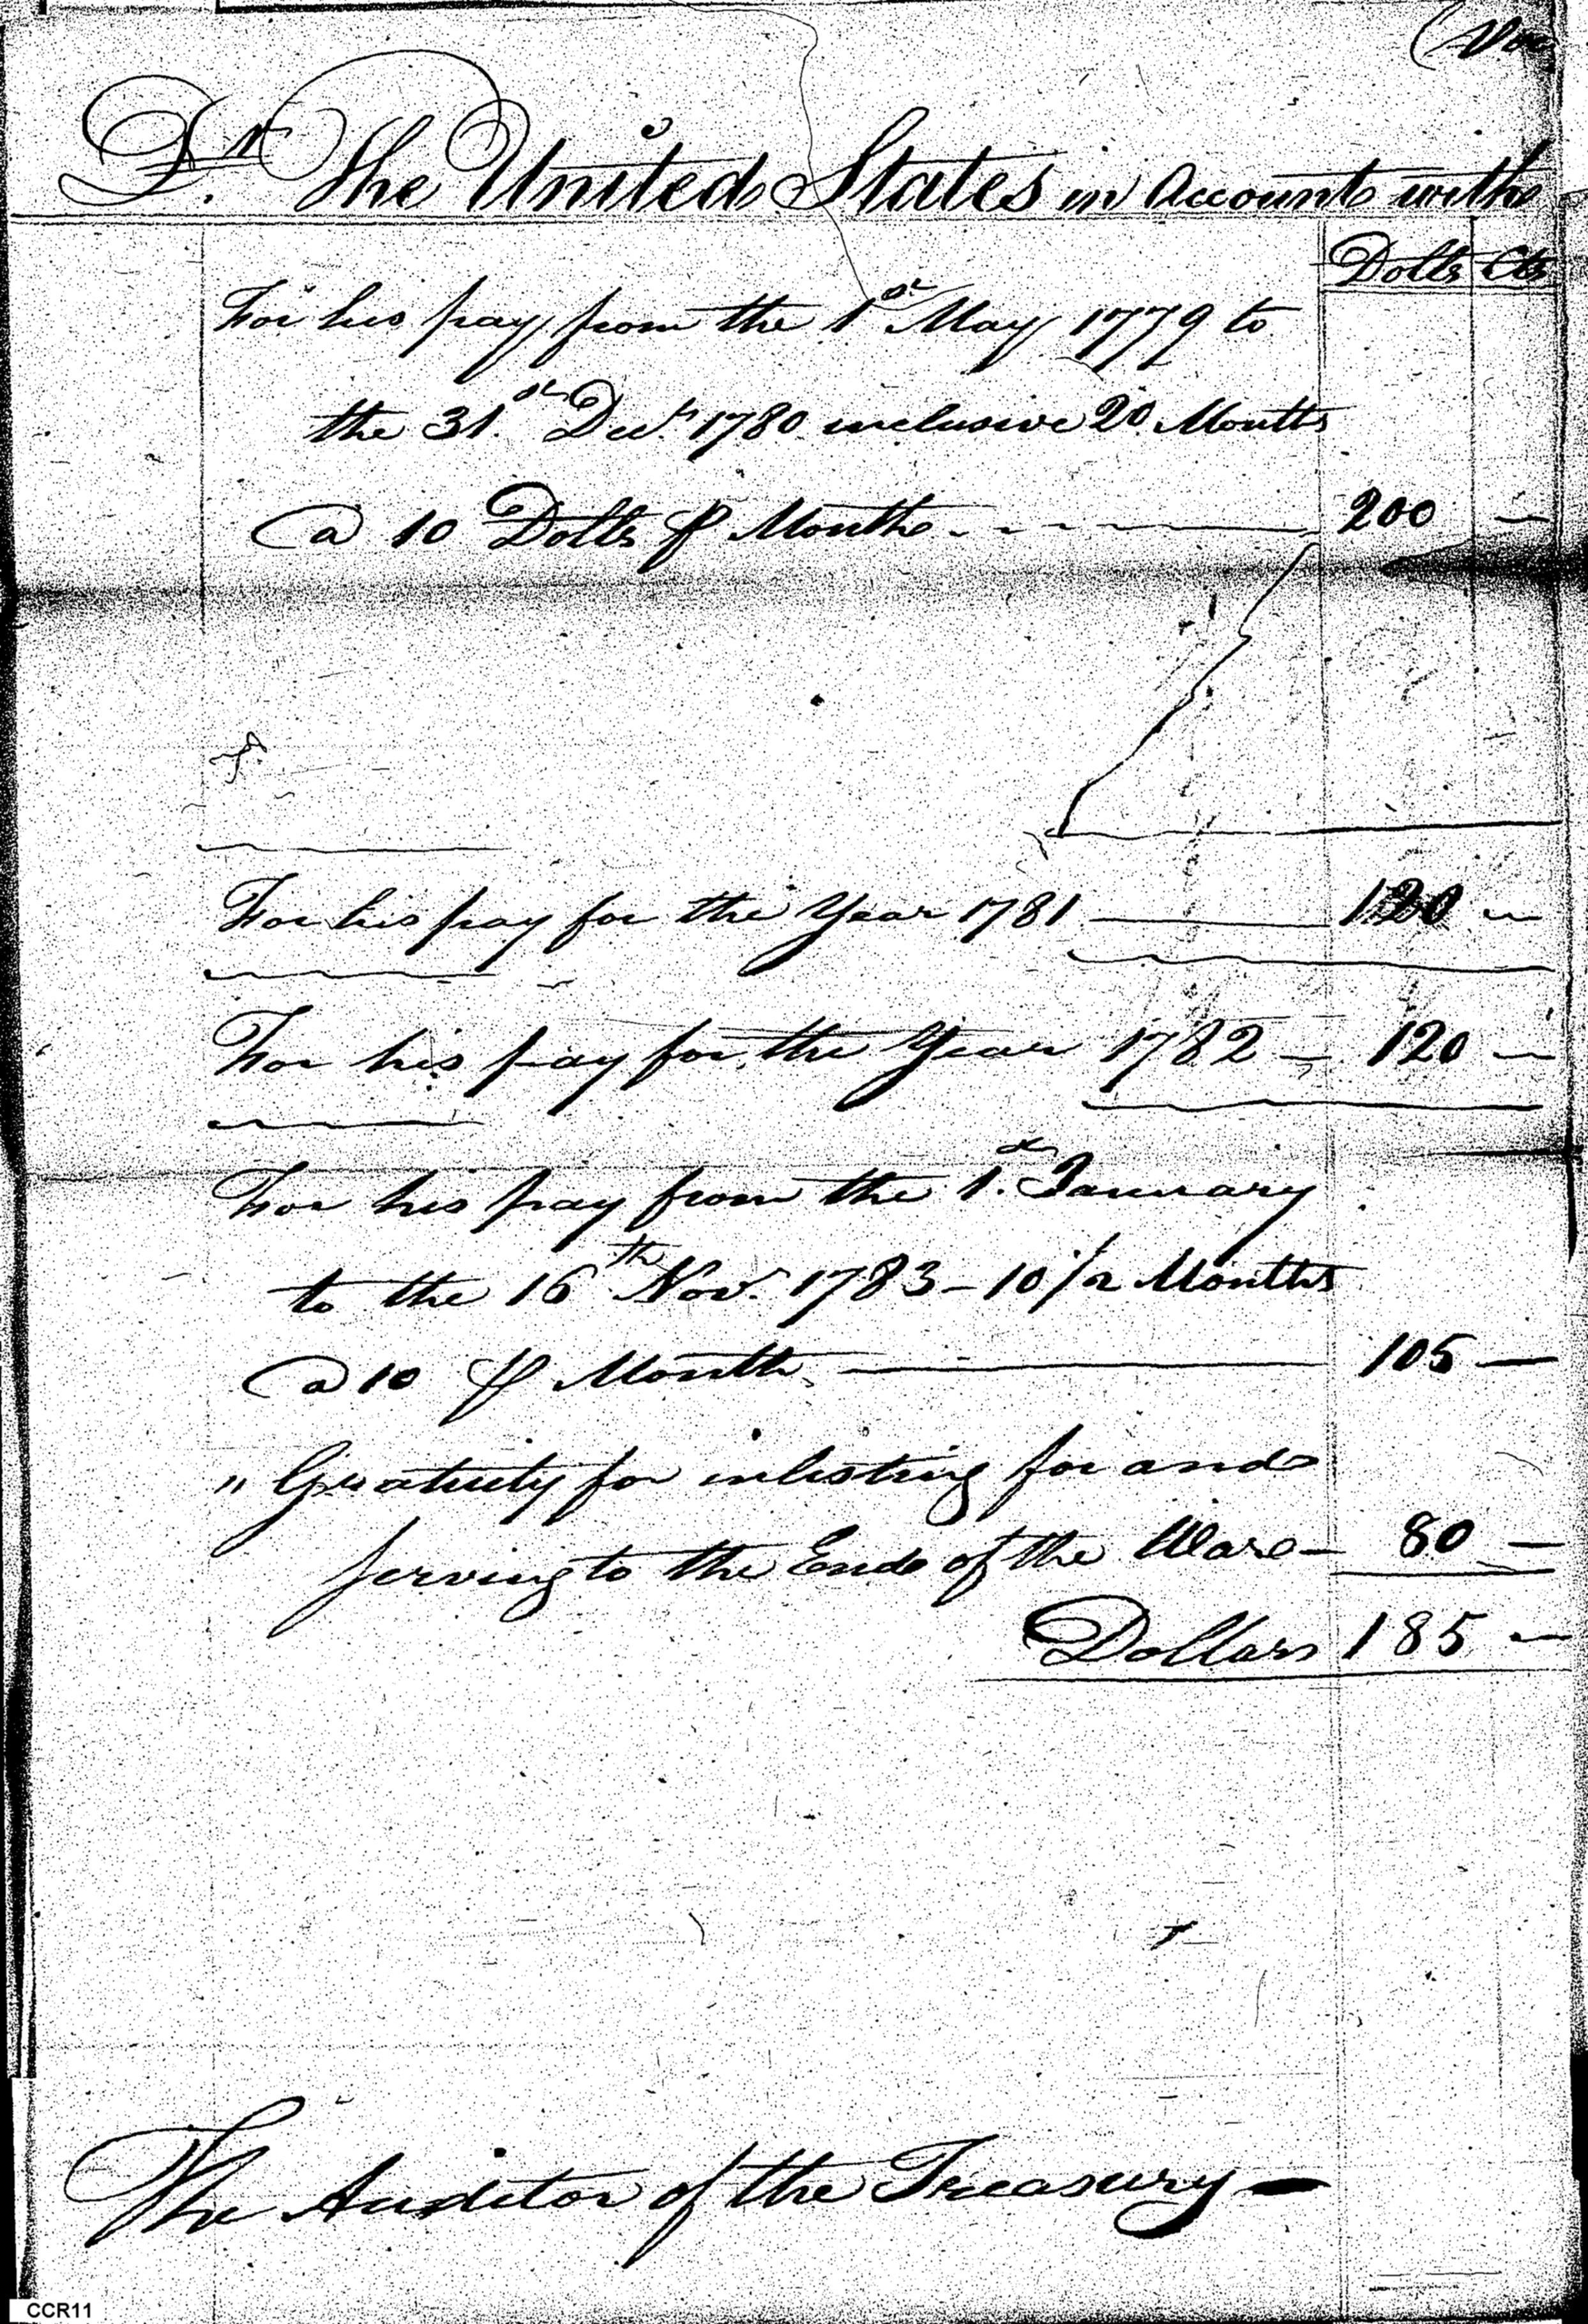 Dr. The United States in Account with
Dolls Cts
For his pay from the 1st May 1779 to
the 31st Decr. 1780 inclusive 20 Months
@ 10 Dolls ⅌ Month 200 —
For his pay for the Year 1781 — 120 —
For his pay for the Year 1782 — 120 —
For his pay from the 1st January
to the 16th Nov. 1783 – 10 1/2 Months
@ 10 ⅌ Month — 105 —
" Gratuity for inlisting for and
serving to the End of the War – 80 —
Dollars 185 —
The Auditor of the Treasury —
CCR11